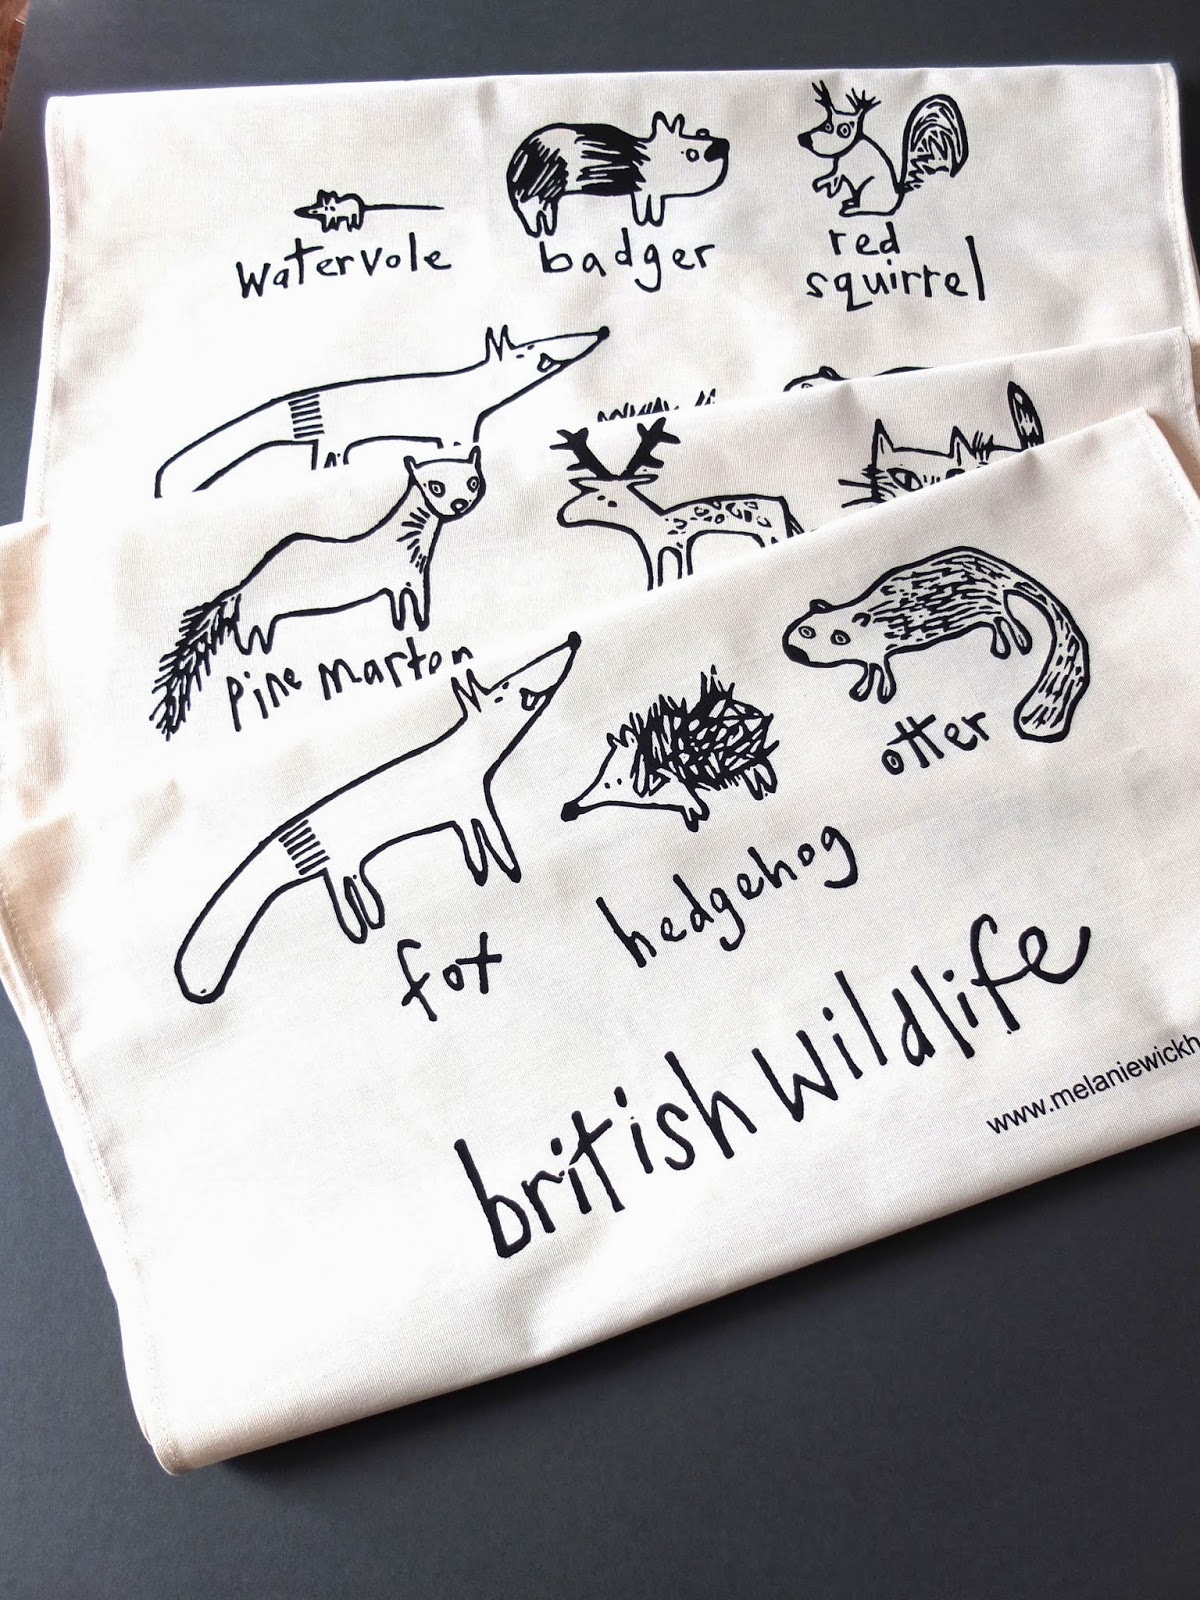 watervole
badger
red
squirrel
pine marton
otter
fox
hedgehog
british wildlife
www.melaniewickh